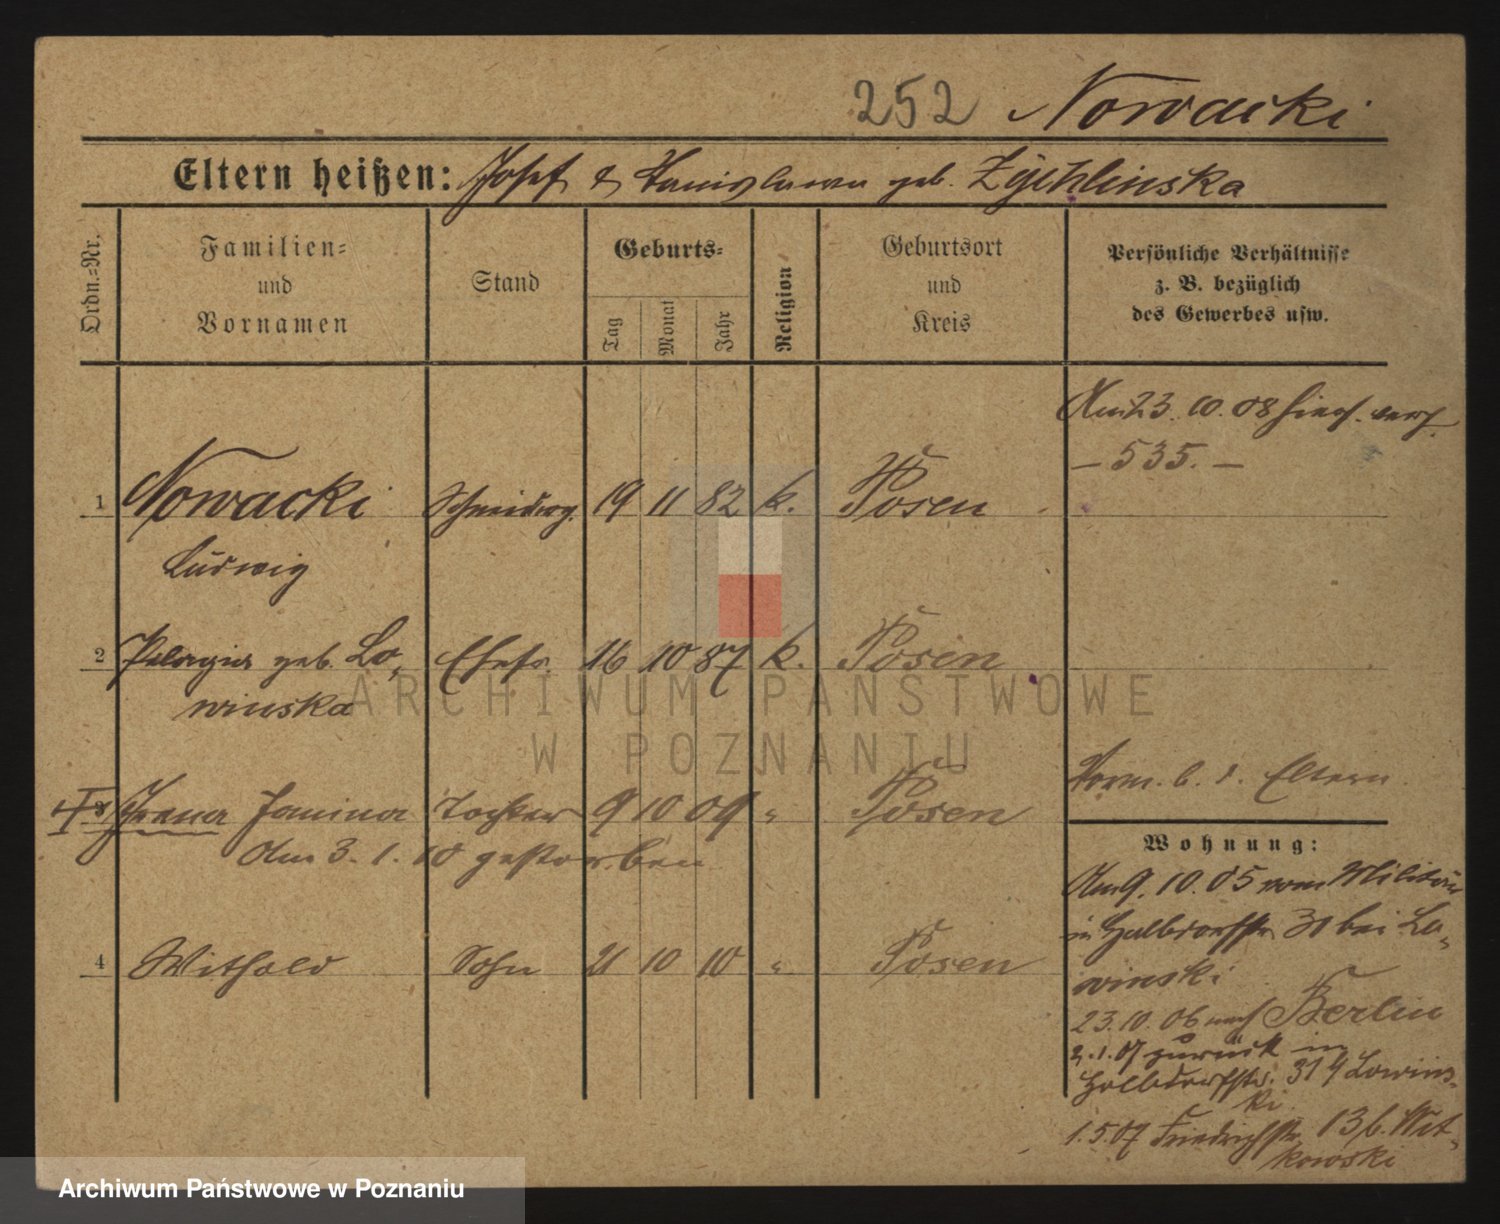 252 Nowacki
Eltern heißen: Josef & Stanislawa geb. Zychlinska
Ordn.=Nr.
Familien=
und
Vornamen
Stand
Geburts=
Tag
Monat
Jahr
Religion
Geburtsort
und
Kreis
Persönliche Verhältnisse
z. B. bezüglich
des Gewerbes usw.
Am 23.10.08 hier verh.
- 535. -
1 Nowacki Schneiderg. 19 11 82 k. Posen
Ludwig
2 Pelagia geb. Lo- Ehefr. 16 10 87 k. Posen
winska
Vorm. b. d. Eltern
3 Irena Janina Tochter 9 10 09 " Posen
Am 3.1.10 gestorben
4 Withold Sohn 21 10 10 " Posen
Wohnung:
Am 9.10.05 vom Militär
in Halbdorfstr. 31 bei Lo-
winski
23.10.06 nach Berlin
2.1.07 zurück in
Halbdorfstr. 31 Lowins-
ki
1.5.07 Friedrichstr. 13 b. Wit-
kowski
ARCHIWUM PAŃSTWOWE
W POZNANIU
Archiwum Państwowe w Poznaniu